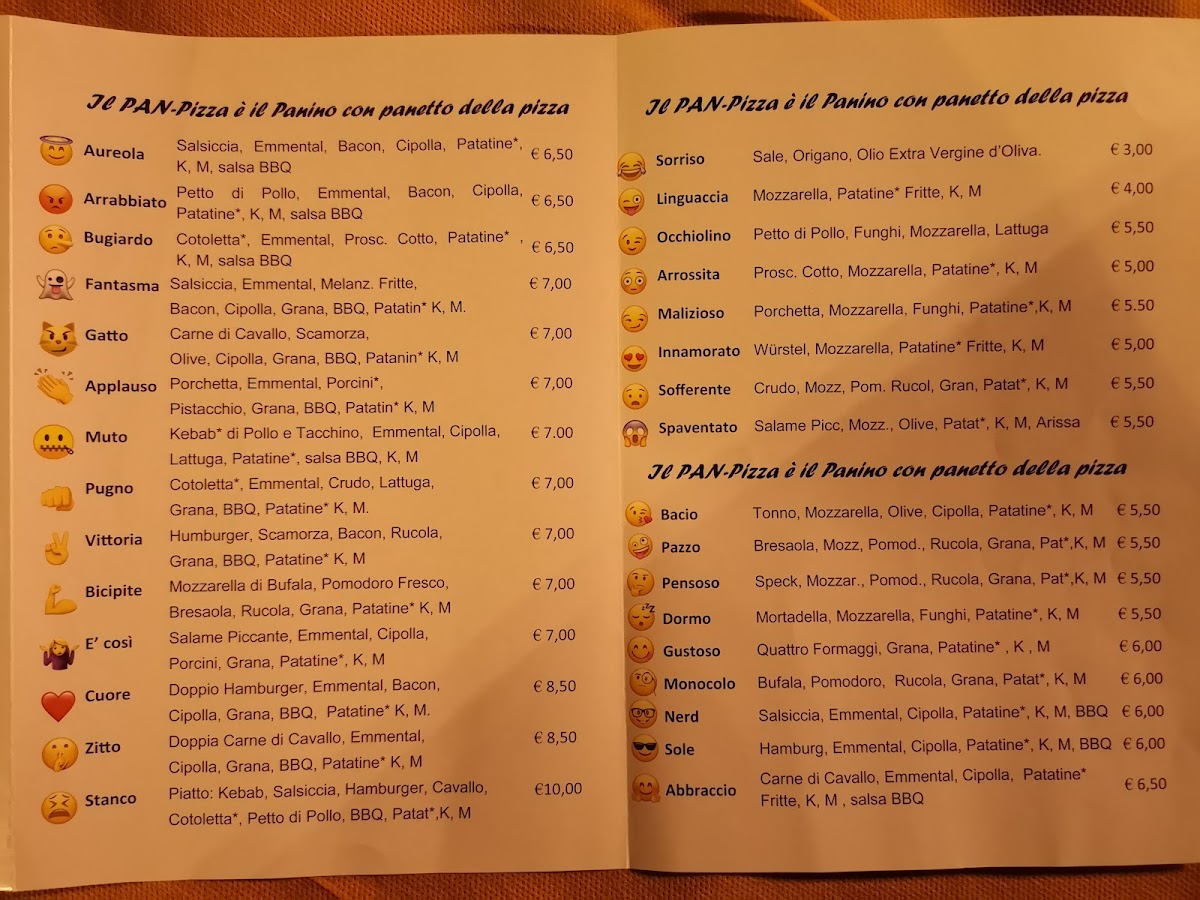 Il PAN-Pizza è il Panino con panetto della pizza
Aureola Salsiccia, Emmental, Bacon, Cipolla, Patatine*, € 6,50
K, M, salsa BBQ
Arrabbiato Petto di Pollo, Emmental, Bacon, Cipolla, € 6,50
Patatine*, K, M, salsa BBQ
Bugiardo Cotoletta*, Emmental, Prosc. Cotto, Patatine* , € 6,50
K, M, salsa BBQ
Fantasma Salsiccia, Emmental, Melanz. Fritte, € 7,00
Bacon, Cipolla, Grana, BBQ, Patatin* K, M.
Gatto Carne di Cavallo, Scamorza, € 7,00
Olive, Cipolla, Grana, BBQ, Patanin* K, M
Applauso Porchetta, Emmental, Porcini*, € 7,00
Pistacchio, Grana, BBQ, Patatin* K, M
Muto Kebab* di Pollo e Tacchino, Emmental, Cipolla, € 7.00
Lattuga, Patatine*, salsa BBQ, K, M
Pugno Cotoletta*, Emmental, Crudo, Lattuga, € 7,00
Grana, BBQ, Patatine* K, M.
Vittoria Humburger, Scamorza, Bacon, Rucola, € 7,00
Grana, BBQ, Patatine* K, M
Bicipite Mozzarella di Bufala, Pomodoro Fresco, € 7,00
Bresaola, Rucola, Grana, Patatine* K, M
E' così Salame Piccante, Emmental, Cipolla, € 7,00
Porcini, Grana, Patatine*, K, M
Cuore Doppio Hamburger, Emmental, Bacon, € 8,50
Cipolla, Grana, BBQ, Patatine* K, M.
Zitto Doppia Carne di Cavallo, Emmental, € 8,50
Cipolla, Grana, BBQ, Patatine* K, M
Stanco Piatto: Kebab, Salsiccia, Hamburger, Cavallo, €10,00
Cotoletta*, Petto di Pollo, BBQ, Patat*,K, M
Il PAN-Pizza è il Panino con panetto della pizza
Sorriso Sale, Origano, Olio Extra Vergine d'Oliva. € 3,00
Linguaccia Mozzarella, Patatine* Fritte, K, M € 4,00
Occhiolino Petto di Pollo, Funghi, Mozzarella, Lattuga € 5,50
Arrossita Prosc. Cotto, Mozzarella, Patatine*, K, M € 5,00
Malizioso Porchetta, Mozzarella, Funghi, Patatine*,K, M € 5.50
Innamorato Würstel, Mozzarella, Patatine* Fritte, K, M € 5,00
Sofferente Crudo, Mozz, Pom. Rucol, Gran, Patat*, K, M € 5,50
Spaventato Salame Picc, Mozz., Olive, Patat*, K, M, Arissa € 5,50
Il PAN-Pizza è il Panino con panetto della pizza
Bacio Tonno, Mozzarella, Olive, Cipolla, Patatine*, K, M € 5,50
Pazzo Bresaola, Mozz, Pomod., Rucola, Grana, Pat*,K, M € 5,50
Pensoso Speck, Mozzar., Pomod., Rucola, Grana, Pat*,K, M € 5,50
Dormo Mortadella, Mozzarella, Funghi, Patatine*, K, M € 5,50
Gustoso Quattro Formaggi, Grana, Patatine* , K , M € 6,00
Monocolo Bufala, Pomodoro, Rucola, Grana, Patat*, K, M € 6,00
Nerd Salsiccia, Emmental, Cipolla, Patatine*, K, M, BBQ € 6,00
Sole Hamburg, Emmental, Cipolla, Patatine*, K, M, BBQ € 6,00
Abbraccio Carne di Cavallo, Emmental, Cipolla, Patatine* € 6,50
Fritte, K, M , salsa BBQ